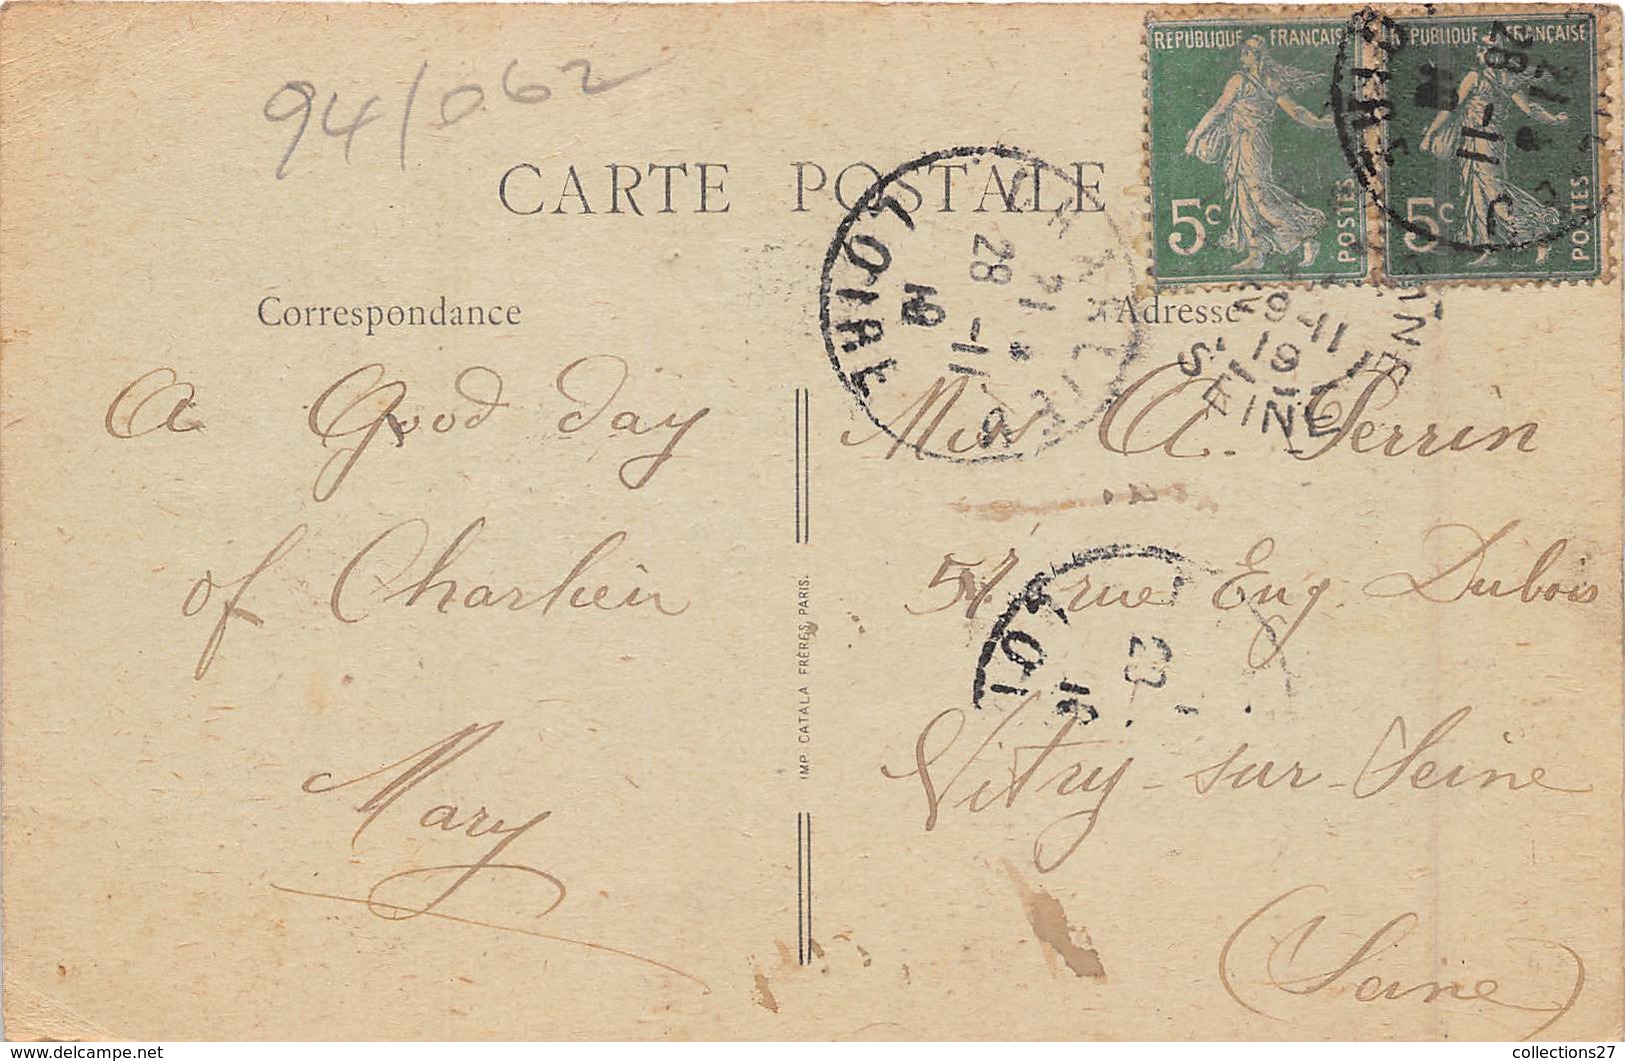 94/062
CARTE POSTALE
RÉPUBLIQUE FRANÇAISE
5c
POSTES
RÉPUBLIQUE FRANÇAISE
5c
POSTES
CHARLIEU
21 *
28 -11
19
LOIRE
29-11
19
SEINE
Correspondance
Adresse
A Good day
of Charlieu
Mary
IMP. CATALA FRÈRES, PARIS.
Miss A. Perrin
57 rue Eug. Dubois
Vitry-sur-Seine
(Seine)
collections27